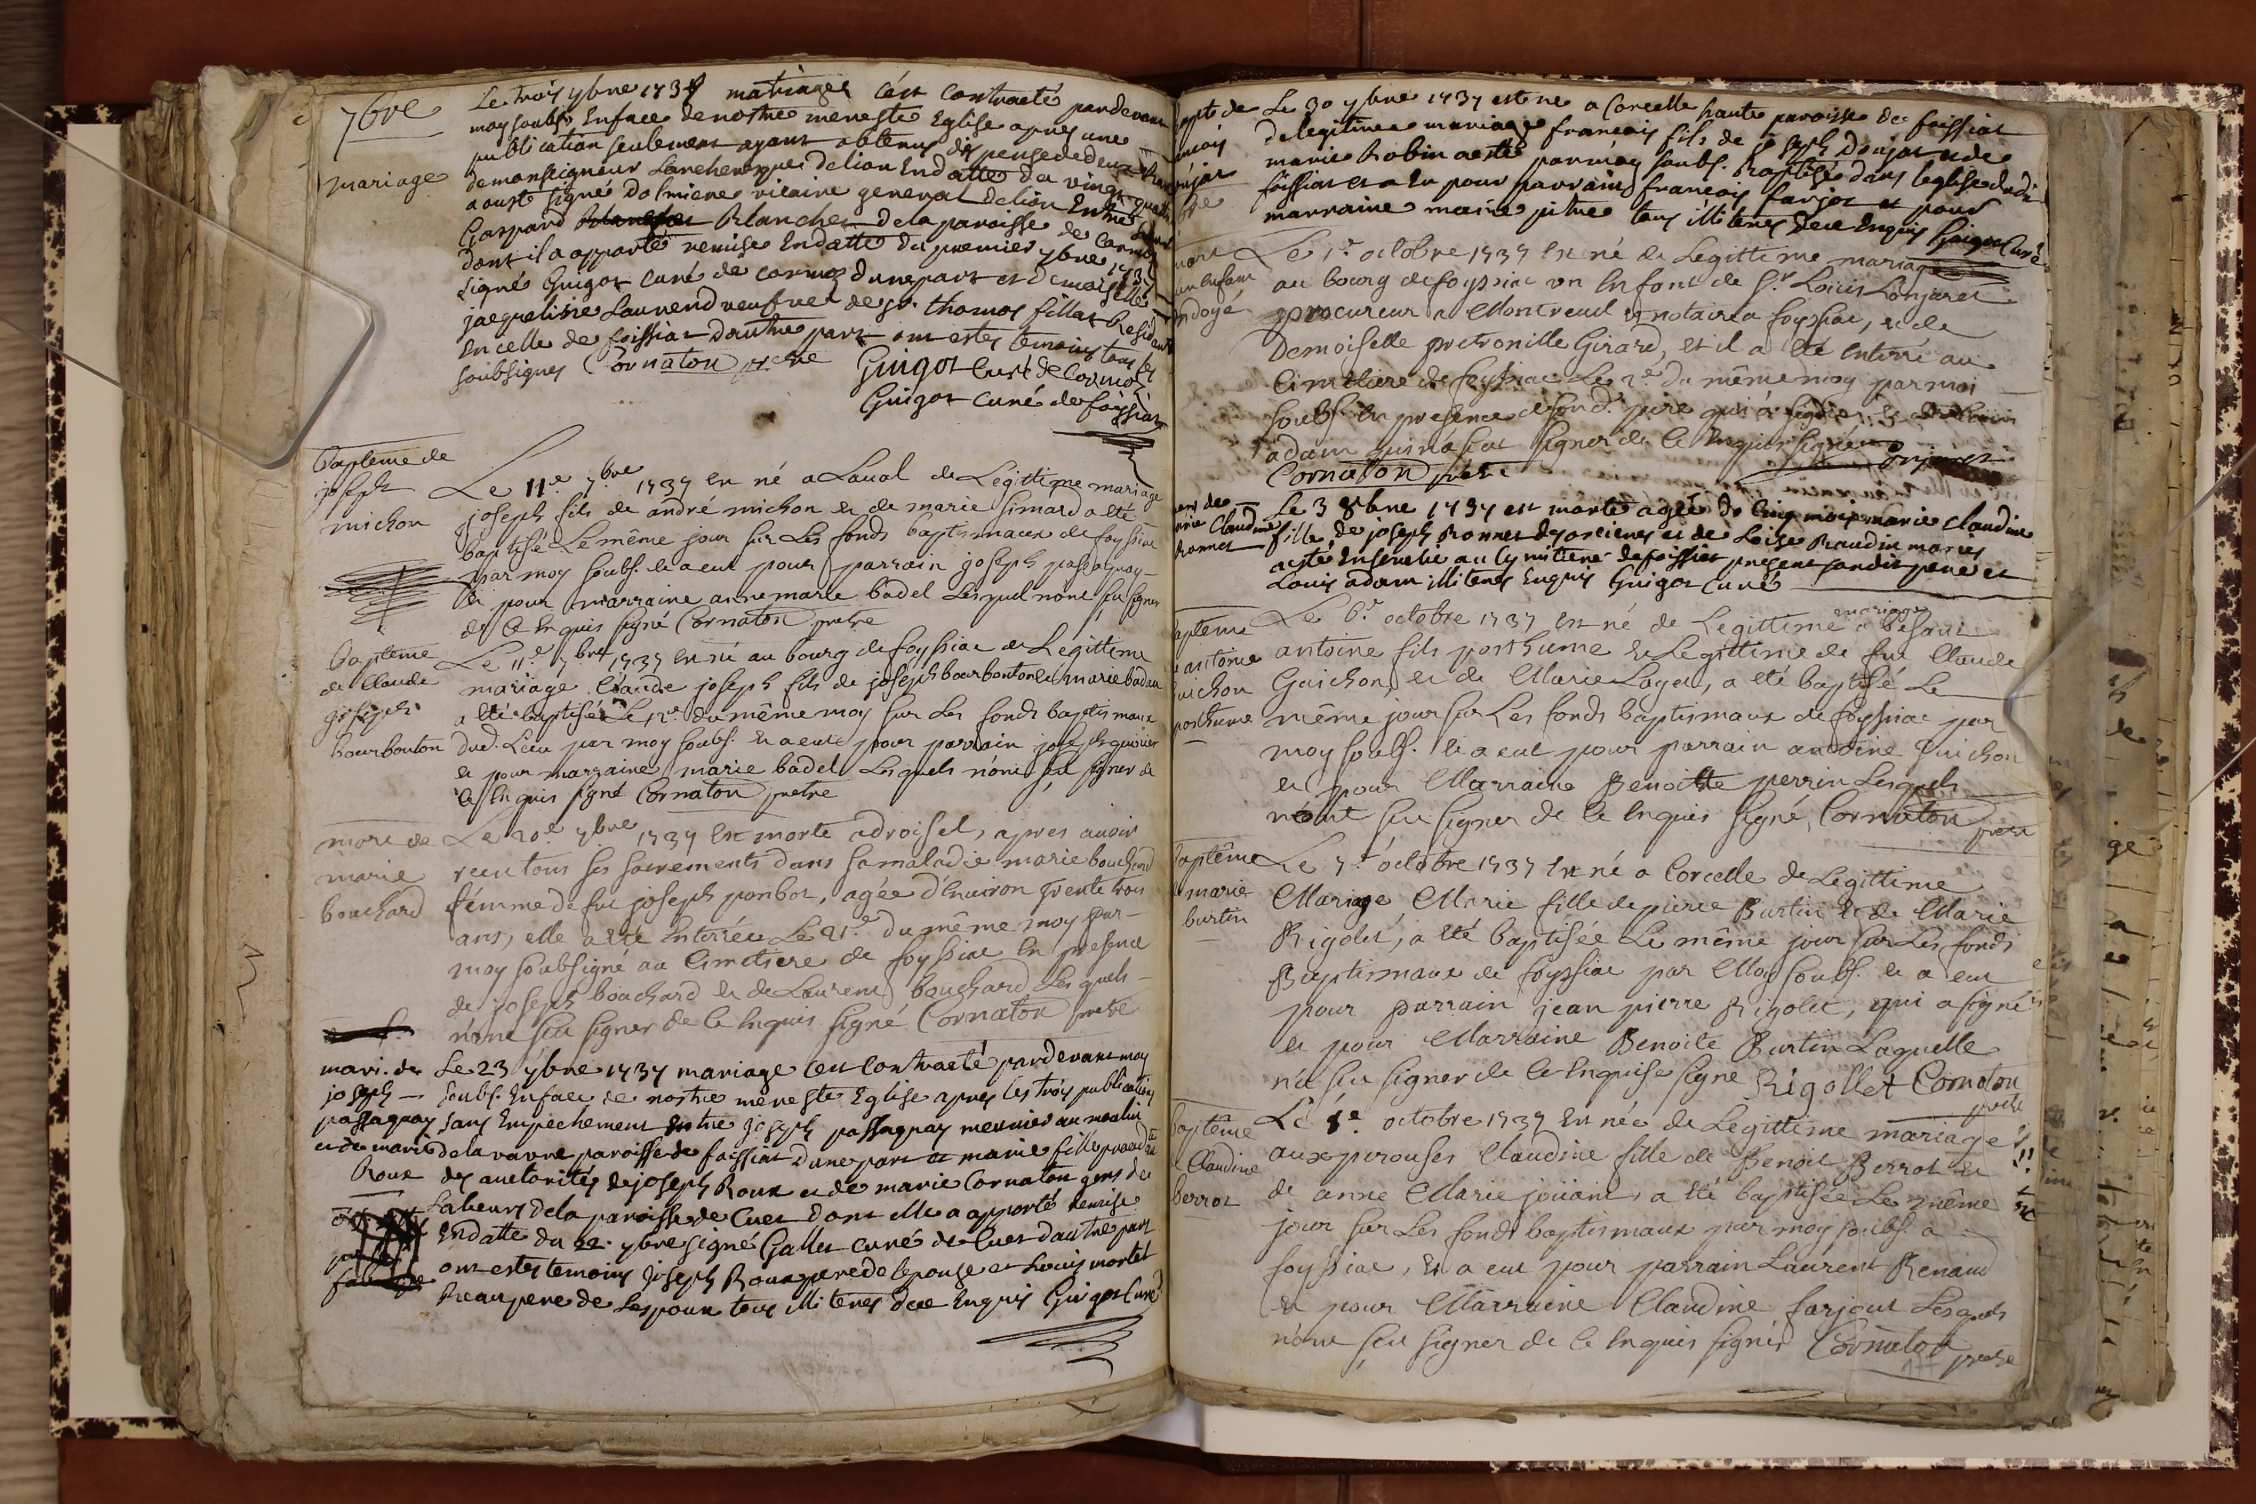 7bre
mariage
Le trois ybre 1737 mariages c'est contracté pardevant
moy soubs. Enface de nostre mere ste Eglise apres une
publication seulement ayant obtenus dispense de deux
de monseigneur Larchevesque de lion Endatte du vingt quatre
aoust signé Dolmiere vicaire general de lion Entre
Gaspard Blanchet de la paroisse de Cormoz
dont il a apporté remise Endatte du premier ybre 1737
signé Guigot curé de cormoz dune part et Demoiselle
jacqueline Laurend veufve de sr. thomas fillat Residente
En celle de foissiat dautre part ont estes temoins tous les
soubsignes Cornaton prêtre Guigot Curé de Cormoz
Guigot curé de foissiat
Bapteme de
joseph
michon
Le 11e 7bre 1737 est né a Laval de Legittime mariage
joseph fils de andré michon et de marie simard a été
baptisé Le même jour sur Les fonds baptismaux de foyssiac
par moy soubs. et a eut pour parrain joseph passaquay
et pour marraine anne marie badel Lesquel nont su signer
de ce Enquis signé Cornaton prêtre
baptême
de Claude
joseph
bourbouton
Le 11e 7bre 1737 est né au bourg de foyssiac de Legittime
mariage Claude joseph fils de joseph bourbouton et marie badin
a été baptisé Le 12e du même moy sur Les fonds baptismaux
dud. Lieu par moy soubs. et a eut pour parrain joseph
et pour marraine marie badel Lesquels n'ont su signer de
ce Enquis signé Cornaton prêtre
mort de
marie
bouchard
Le 20e 7bre 1737 est morte adroisel, apres avoir
recu tous ses sacrements dans sa maladie marie bouchard
fémme de feu joseph ponbot, agée d'Environ trente trois
ans, elle a été Enterrée Le 21e du même moy par
moy soubsigné au Cimetiere de foyssiac En presence
de joseph bouchard et de Laurent bouchard Lesquels
n'ont seu signer de ce Enquis signé Cornaton prêtre
mari. de
joseph
passaquay
et de marie
Roux
Le 23 ybre 1737 mariage cest Contracté pardevant moy
soubs. Enface de nostre mere ste Eglise apres les trois publications
sans Empechement Entre joseph passaquay meunier au moulin
de la vavre paroisse de foissiat dune part et marie fille
des auctorités de joseph Roux et de marie Cornaton gens de
Labeurs de la paroisse de Cuet dont elle a apporté remise
Endatte du 22 ybre signé Gallet curé de Cuet dautre part
ont estes temoins joseph Roux pere de lepouse et Louis mortel
Beaupere de Lespoux tous illiteres de ce Enquis Guigot Curé
Le 30 ybre 1737 est né a Corcelle haute paroisse de foissiat
de legitime mariage francois fils de joseph Donjat et de
marie Robin a esté par moy soubs. Baptisé dans leglise dudit
foissiat et a Eu pour parrain francois farjot et pour
marraine marie pitre tous illiteres de ce Enquis Guigot Curé
mort
un Enfant
ondoyé
Le 1er octobre 1737 est né de Legittime mariage
au bourg de foyssiac un Enfant de Sr. Louis Lonjaret
procureur a Montreveul et notaire a foyssiac, et de
Demoiselle pretronille Girard, et il a été Enterré au
Cimetiere de foyssiac Le 2e du même moy par moi
soubs. En presence de sond. pere qui a signé et de Louis
adam qui na seu signer de ce Enquis signé
Cornaton prêtre
Claudine
Bonnet
Le 3 8bre 1737 est morte agée de Cinq mois marie Claudine
fille de joseph Bonnet des orcieres et de Loise Baudin maries
a esté Ensevelie au Cymitiere de foissiat present sondit pere et
Louis adam illiteres Enquis Guigot curé
baptême
antoine
Guichon
posthume
Le 6e octobre 1737 est né de Legittime mariage a besant
antoine fils posthume et Legittime de feu Claude
Guichon, et de Marie Layer, a été baptisé Le
même jour sur Les fonds baptismaux de foyssiac par
moy soubs. et a eut pour parrain antoine Guichon
et pour Marraine Benoitte perrin Lesquels
n'ont seu signer de ce Enquis signé, Cornaton
prêtre
baptême
marie
burtin
Le 7e octobre 1737 est né a Corcelle de Legittime
Mariage Marie fille de pierre Burtin et de Marie
Rigolet, a été baptisée Le même jour sur Les fonds
Baptismaux de foyssiac par Moy soubs. et a eut
pour parrain jean pierre Rigolet, qui a signé
et pour Marraine Benoite Burtin Laquelle
n'a seu signer de ce Enquise signe Rigollet Cornaton
prêtre
baptême
Claudine
berrot
Le 8e octobre 1737 est née de Legittime mariage
aux perouses Claudine fille de Benoit Berrot et
de anne Marie joüant, a été baptisée Le même
jour sur Les fonds baptismaux par moy soubs. a
foyssiac, et a eut pour parrain Laurent Renaud
et pour Marraine Claudine farjout Lesquels
n'ont seu signer de ce Enquis signés Cornaton
prêtre